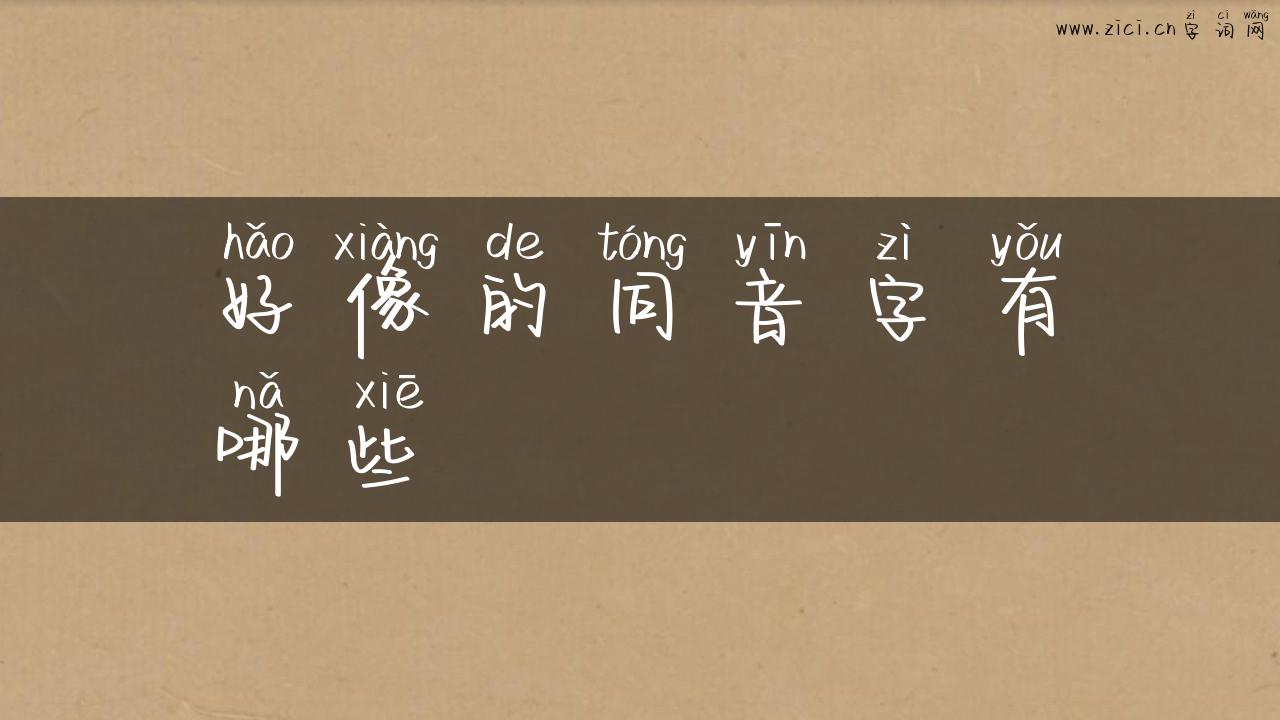 zì cí wǎng
www.zici.cn 字词网
hǎo xiàng de tóng yīn zì yǒu
好像的同音字有
nǎ xiē
哪些